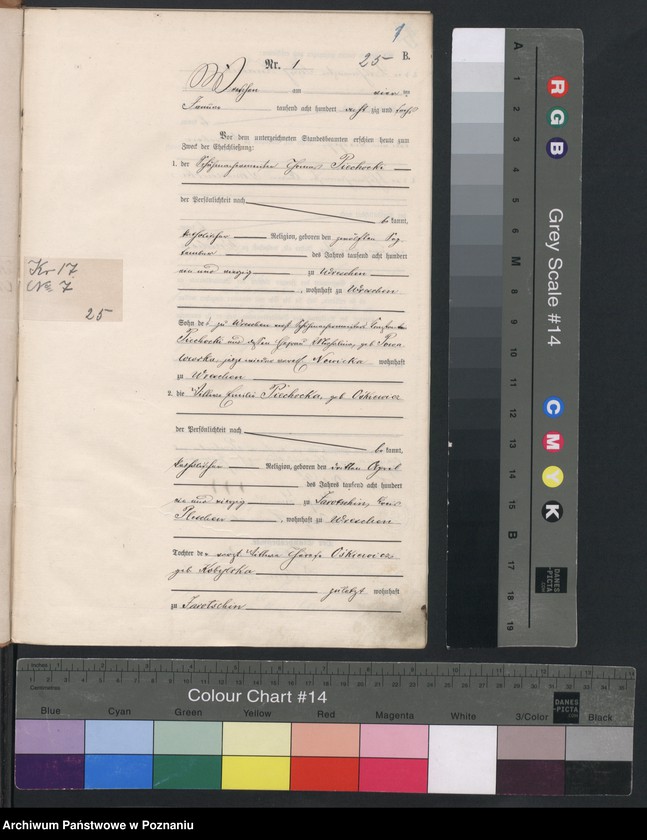 1
Nr. 1 25 B.
Wreschen am vier ten
Januar tausend acht hundert acht zig und
Vor dem unterzeichneten Standesbeamten erschien heute zum
Zweck der Eheschließung:
1. der Piechocki
der Persönlichkeit nach
be kannt,
katholischer Religion, geboren den zwölften Sep
tember des Jahres tausend acht hundert
ein und vierzig zu Wreschen
, wohnhaft zu Wreschen
Sohn des zu Wreschen
Piechocki und dessen Ehefrau geb
jetzt wieder Nowicka wohnhaft
zu Wreschen
2. die Wittwe Emilie Piechocka, geb Oskiewicz
der Persönlichkeit nach
be kannt,
katholischer Religion, geboren den dritten April
des Jahres tausend acht hundert
und vierzig zu Jarotschin, Kreis
Pleschen , wohnhaft zu Wreschen
Tochter der Wittwe Oskiewicz
geb Kobylska
zuletzt wohnhaft
zu Jarotschin
Kr 17
No 7
25
A 1 2 3 4 5 M 8 9 10 11 12 13 14 15 B 17 18 19
R G B
Grey Scale #14
C M Y K
DANES-PICTA
.COM
Inches
Centimetres
Colour Chart #14
DANES-PICTA
.COM
Blue Cyan Green Yellow Red Magenta White 3/Color Black
Archiwum Państwowe w Poznaniu